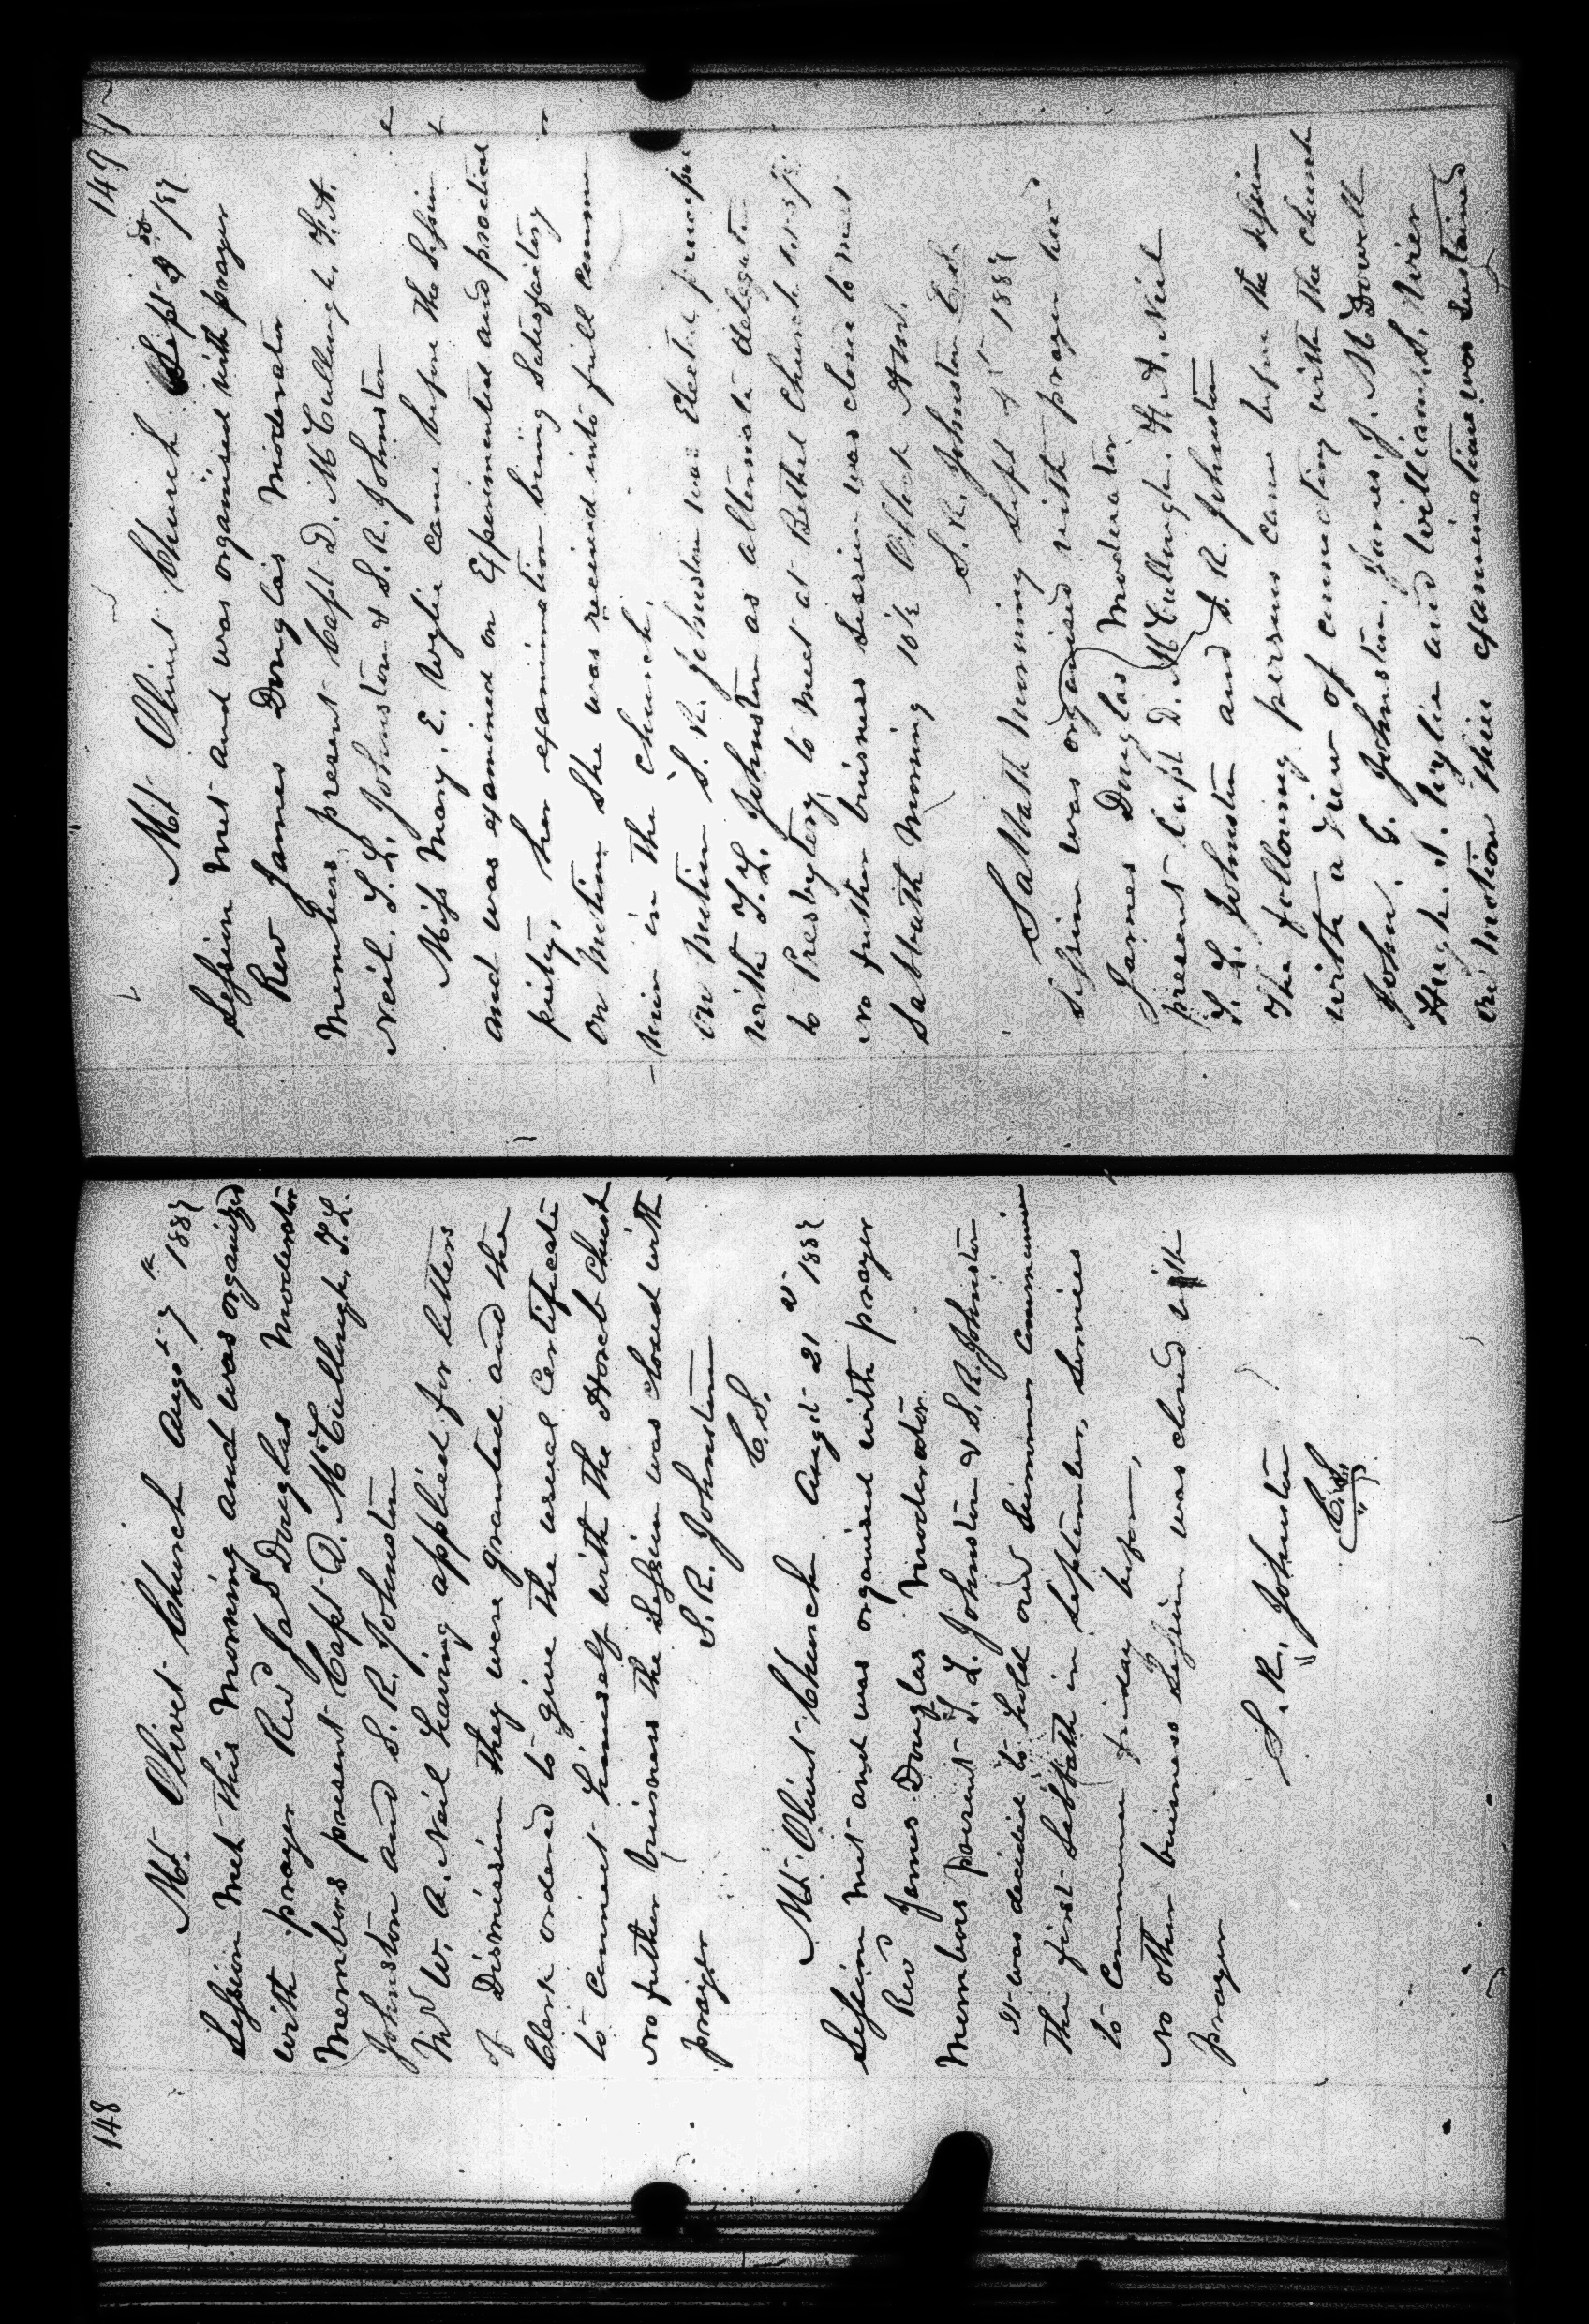 148
Mt. Olivet Church Augt 7th 1887
Session Met this Morning and was organized
with prayer Revd Jas Douglas Moderator
Members present Capt D. McCullough, T. L.
Johnston and S. R. Johnston
Mr W. A. Neil having applied for letters
of Dismission they were granted and the
Clerk ordered to give the usual Certificate
to Connect himself with the Horeb Church
No futher buisness the Session was closed with
prayer S. R. Johnston
C. S.
Mt. Olivet Church Augt 21 1887
Session Met and was organised with prayer
Rev James Douglas Moderator
Members present T. L. Johnston & S. R. Johnston
It was decided to hold our Summer Communion
the first Sabbath in September, Services
to Commence friday before,
No other buisness Session was closed with
prayer
S. R. Johnston
C. S.
149
Mt Olivet Church Sept 3rd /87
Session Met and was organised with prayer
Rev James Douglas Moderator
Members present Capt D. McCullough, H. A.
Neil, T. L. Johnston & S. R. Johnston
Miss Mary. E. Wylie came before the Session
and was examined on Experimental and practical
piety, her examination being Satisfactory
on Motion She was received into full commu
nion in the church.
On Motion S. R. Johnston was Elected
with T. L. Johnston as alternate
to Presbytery to meet at Bethel Church
No futher buisness Session was close to meet
Sabbath Morning 10½ Oclock AM.
S. R. Johnston C. S.
Sabbath Morning Sept 1887
Session was organised with prayer
James Douglas Moderator
present Capt D. McCullough. H. A. Neil
T. L. Johnston and S. R. Johnston
The following persons came before the Session
with a view of connecting with the church
John. G. Johnston, James. J. McDowell
Hugh. S. Wylie and William S.
On Motion thier examination was Sustained